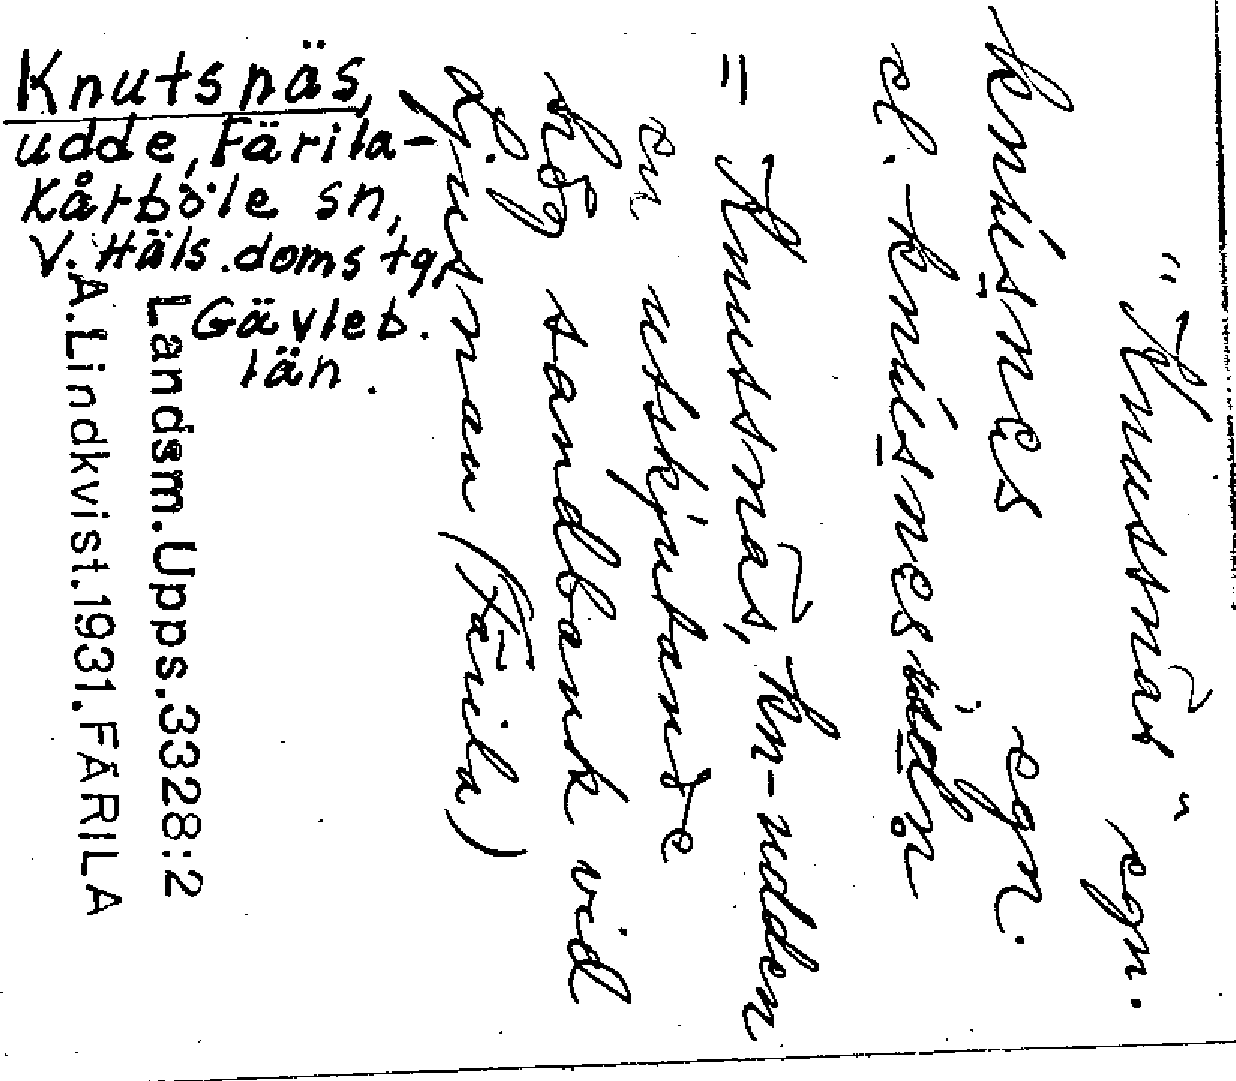 Knutsnäs,
udde, Färila-
Kårböle sn,
V. Häls. domstg,
Gävleb.
län.
"Knutsnäs" egn.
knúsnes egn.
el. -knúsnes
= Knutsnäs, Kn-udden
en utskjutande
hög sandbank vid
Lj. Ljusnan (Färila)
Landsm. Upps. 3328:2
A. Lindkvist. 1931. FÄRILA